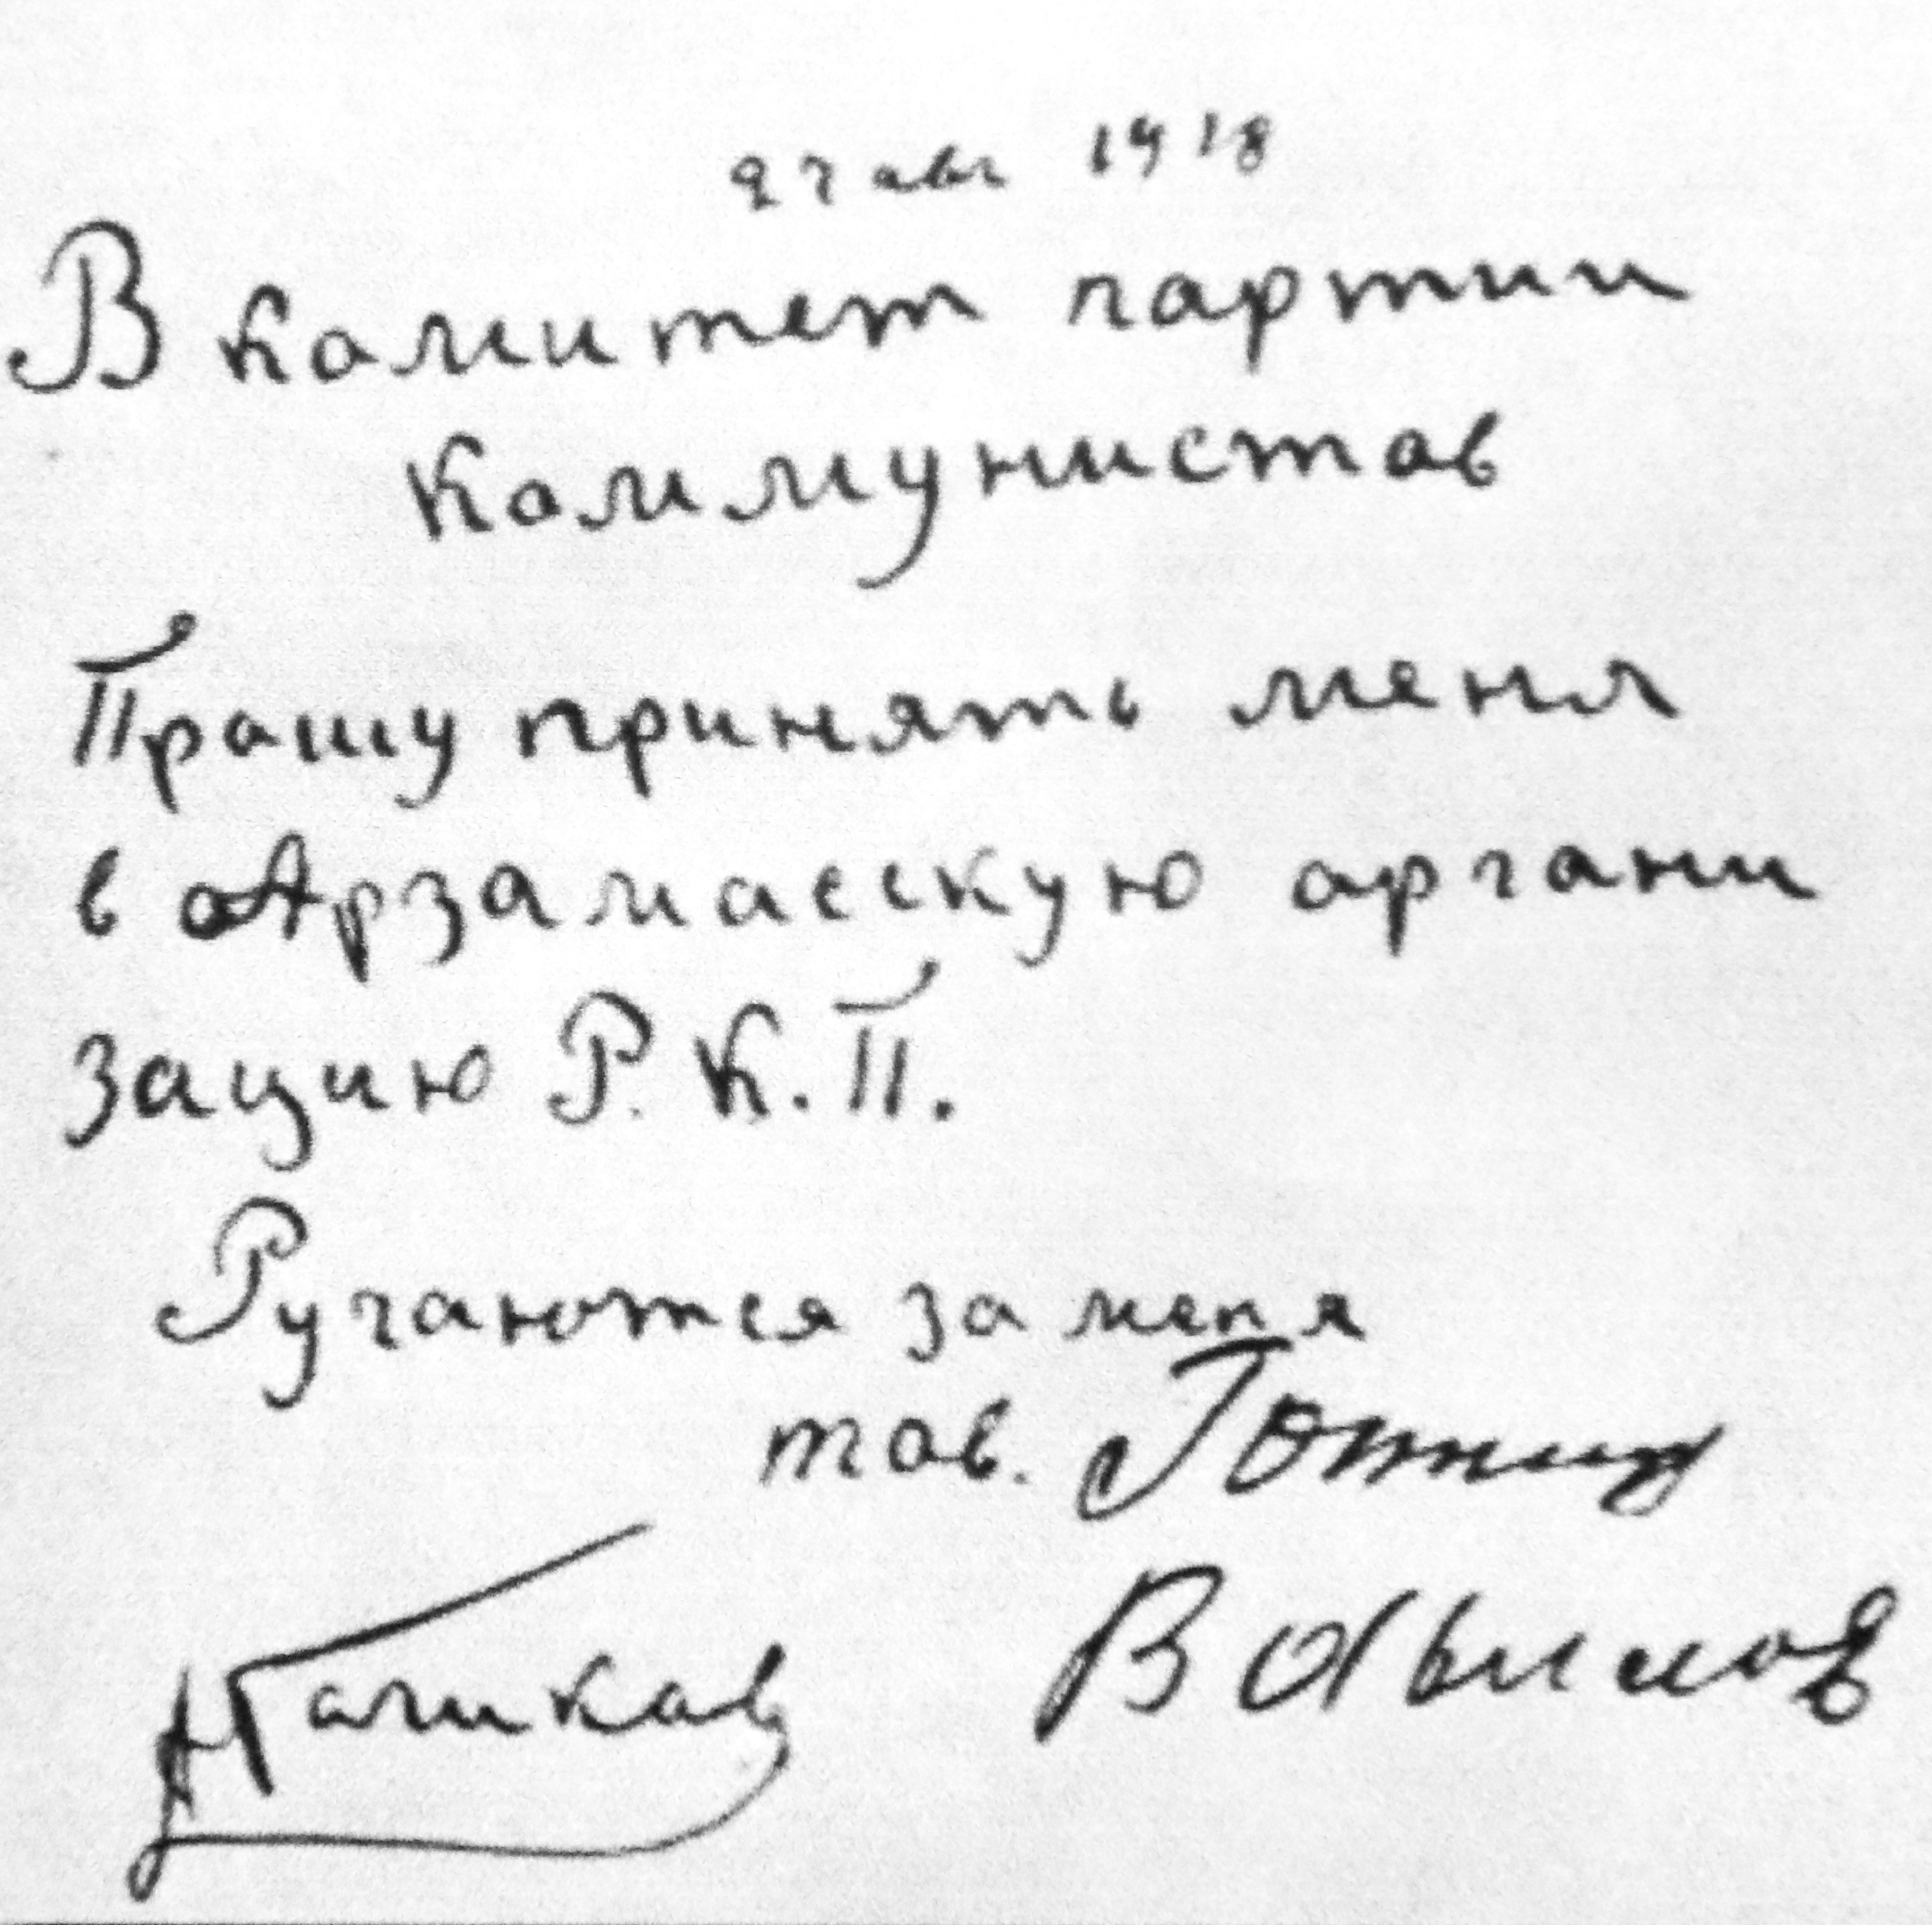 27 авг 1918
В комитет партии
коммунистов
Прошу принять меня
в Арзамасскую органи
зацию Р. К. П.
Ручаются за меня
тов. Гоппиус
Вавилов
АГоликов